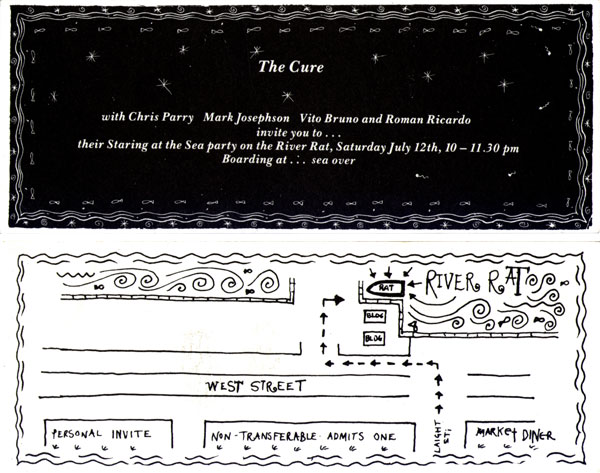 The Cure
with Chris Parry Mark Josephson Vito Bruno and Roman Ricardo
invite you to . . .
their Staring at the Sea party on the River Rat, Saturday July 12th, 10 – 11.30 pm
Boarding at . : . sea over
RIVER RAT
RAT
BLDG
BLDG
WEST STREET
LAIGHT ST:
PERSONAL INVITE
NON-TRANSFERABLE ADMITS ONE
MARKET DINER